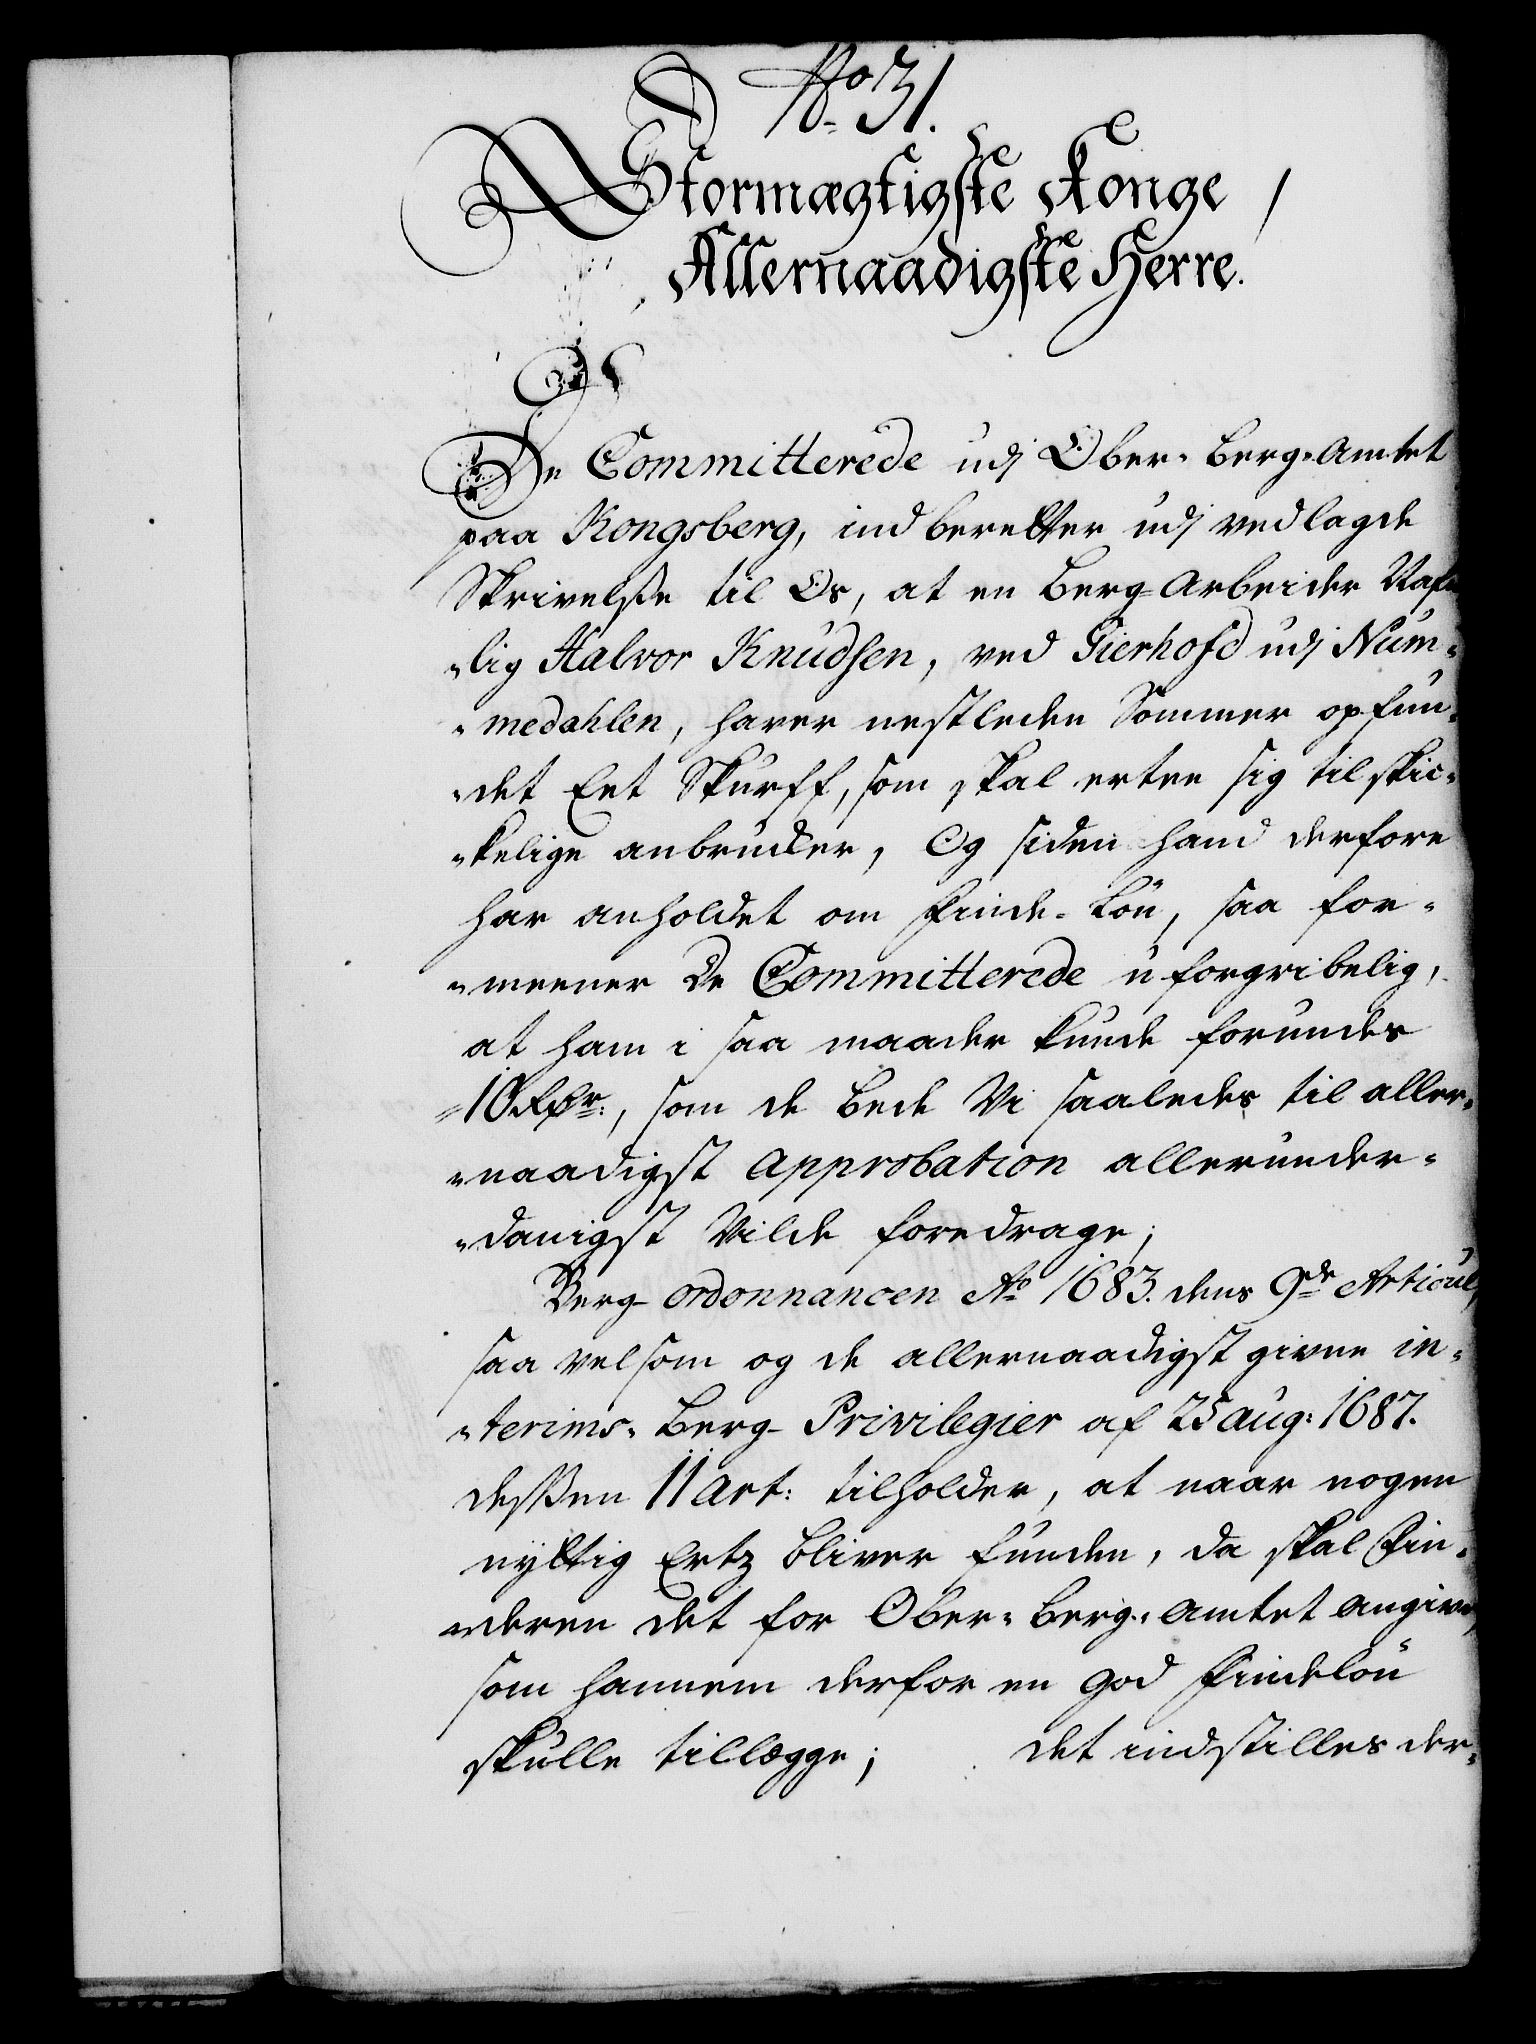 No 31.
Stormægtigste Konge /
Allernaadigste Herre.
De Committerede udj Ober-Berg-Amtet
paa Kongsberg, indberetter udj vedlagde
Skrivelsße til Os, at en Berg-Arbeider Nafn
-lig Halvor Knudsen, ved Gierhofd udj Num-
-medahlen, haver nestleden Sommer opfun-
-det Eet Skurff, som skal ertee sig til skic-
-kelige anbrücker, Og siden hand derfore
har anholdet om Finde-Lön, saa for-
-meener De Committerede uforgribelig,
at ham i saa maader kunde forundes
10 Rdr:, som de bede Vi saaledes til aller-
-naadigst Approbation allerunder-
-danigst Vilde foredrage;
Berg-ordonnancen Ao 1683. dens 9de Articul,
saa velsom og de allernaadigst givne in-
-terims-Berg-Privilegier af 25 Aug: 1687.
deßen 11 Art: tilholder, at naar nogen
nyttig Ertz bliver funden, da skal Fin-
-deren det for Ober-Berg-Amtet angive,
som hannem derfor en god Findelön
skulle tillægge; det indstilles der-